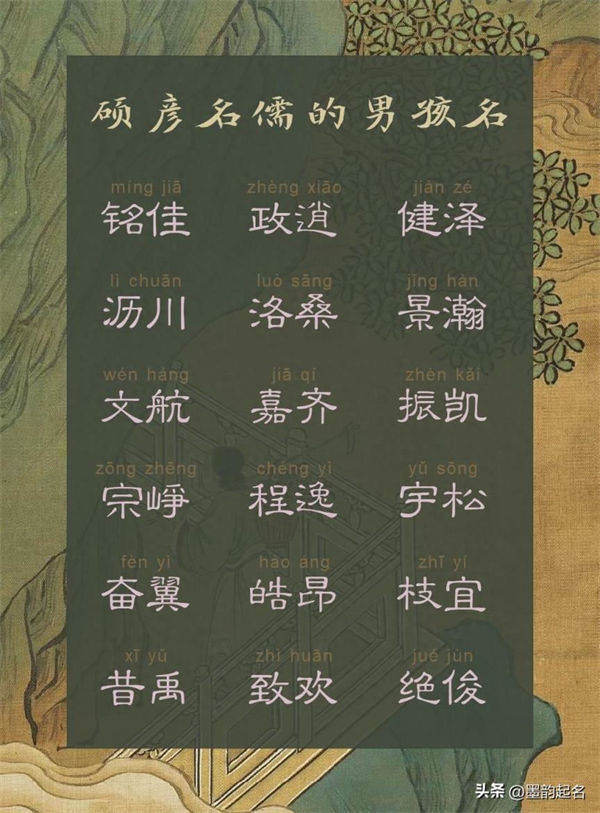 硕彦名儒的男孩名
míng jiā zhèng xiāo jiàn zé
铭佳 政逍 健泽
lì chuān luò sāng jǐng hàn
沥川 洛桑 景瀚
wén háng jiā qí zhèn kǎi
文航 嘉齐 振凯
zōng zhēng chéng yì yǔ sōng
宗峥 程逸 宇松
fèn yì hào áng zhī yí
奋翼 皓昂 枝宜
xī yǔ zhì huān jué jùn
昔禹 致欢 绝俊
头条 @墨韵起名